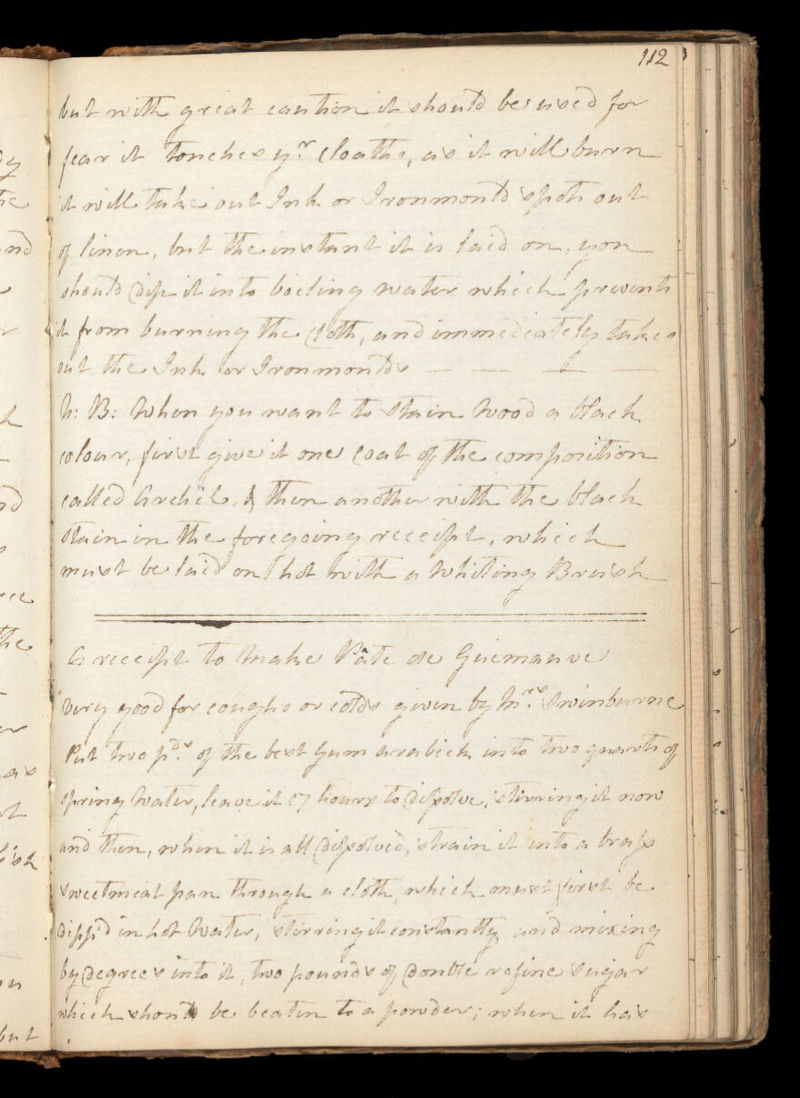 112
but with great caution it should be used for
fear it touches yr. cloaths, as it will burn
it will take out Ink or Ironmould spots out
of linen, but the instant it is laid on, you
should dip it into boiling water which prevents
it from burning the Cloth, and immediately takes
out the Ink or Ironmoulds — — — —
N: B: When you want to stain Wood a black
colour, first give it one Coat of the composition
called Archil, & then another with the black
stain in the foregoing receipt, which
must be laid on hot with a Whiting Brush
A receipt to make Pâte de Guimauve
very good for coughs or colds given by Mrs. Swinburne
Put two pds. of the best Gum arabick into two quarts of
spring Water, leave it 17 hours to dissolve, stirring it now
and then, when it is all dissolved, strain it into a brass
sweetmeat pan through a cloth, which must first be
dipp'd in hot Water, stirring it constantly, and mixing
by degrees into it, two pounds of double refine sugar
which should be beaten to a powder; when it has